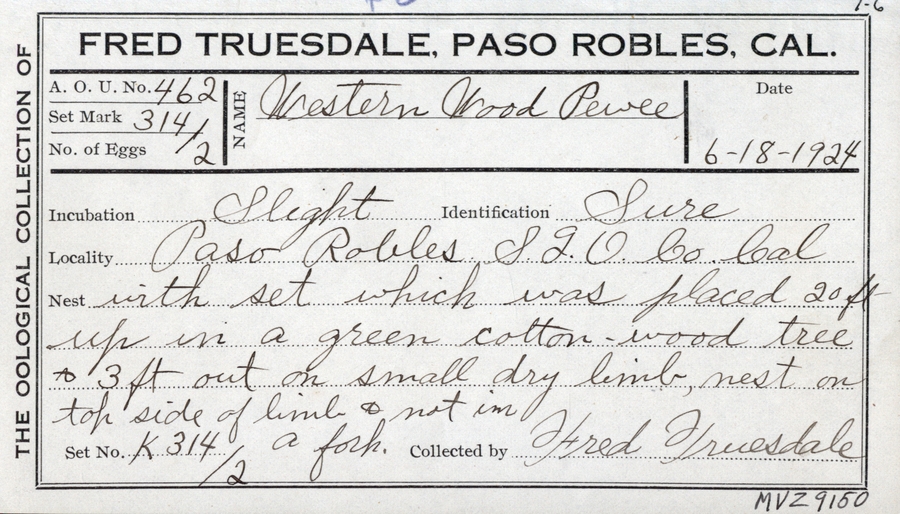 1-6
FRED TRUESDALE, PASO ROBLES, CAL.
THE OOLOGICAL COLLECTION OF
A. O. U. No. 462
Set Mark 314/2
No. of Eggs
NAME
Western Wood Pewee
Date
6-18-1924
Incubation Slight Identification Sure
Locality Paso Robles S.L.O. Co. Cal
Nest with set which was placed 20 ft
up in a green cotton-wood tree
& 3 ft out on small dry limb, nest on
top side of limb & not in
a fork.
Set No. K 314/2 Collected by Fred Truesdale
MVZ 9150